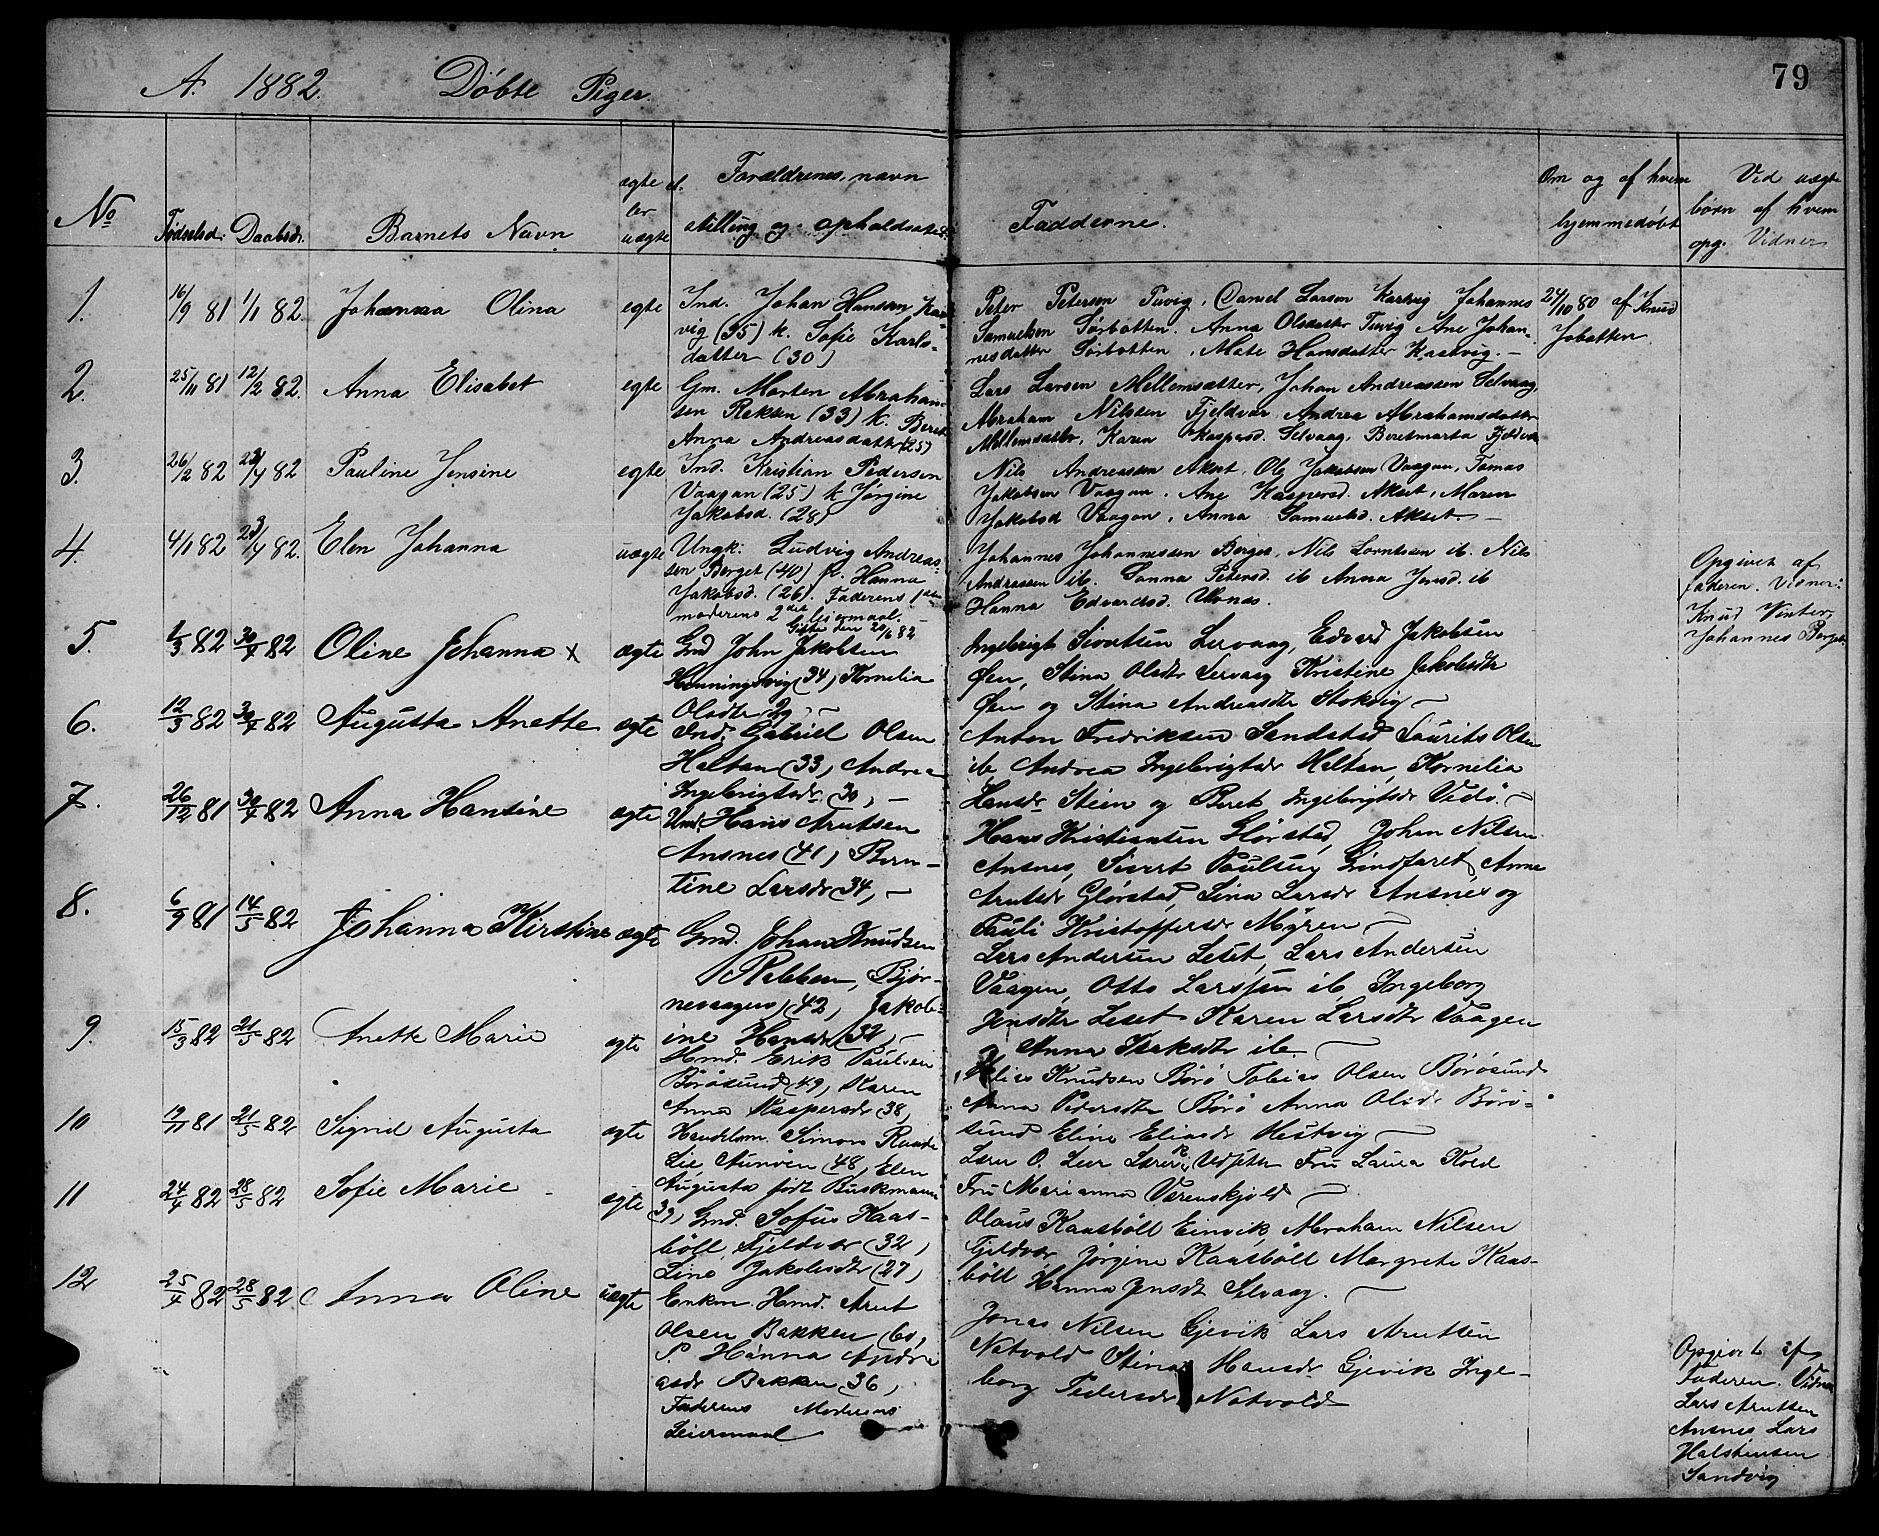 A. 1882. Døbte Piger.
79
No
Fødselsd. Daabsd. Barnets Navn
ægte el-
ler
uægte
Forældrenes navn
stilling og opholdssted.
Fadderne.
Om og af hvem
hjemmedøbt
Ved uægte
børn af hvem
opg. Vidner
1. 16/9 81 1/1 82. Johanna Olina egte
Ind. Johan Hansen Kas-
vig (35) k. Sofie Karls-
datter (30)
Peter Petersen Tuvig, Daniel Larsen Kartvig Johannes
Samuelsen Sørbotten. Anna Olsdatter Tuvig Ane Johan-
nesdatter Sørbotten, Mate Hansdatter Kastvig. –
24/10 80 af Knud
Jobotten
2. 25/11 81 12/2 82. Anna Elisabet egte
Gm. Morten Abraham-
sen Reksen (33) k. Beret
Anna Andreasdatter (25)
Lars Larsen Mellemsætter, Johan Andreassen Selvaag,
Abraham Nilssen Fjeldvær Andrea Abrahamsdatter
Mellemsætter, Karen Kaspersd. Selvaag, Beretmarta Fjeldvær
3. 26/2 82 23/4 82 Pauline Jensine egte
Ind. Kristian Pedersen
Vaagan (25) k Jørgine
Jakobsd. (28)
Nils Andreassen Akset, Ole Jakobsen Vaagan, Tomas
Jakobsen Vaagan. Ane Kaspersd. Akset, Maren
Jakobsd Vaagan, Anna Samuelsd. Akset. –
4. 4/1 82 23/4 82. Elen Johanna uægte
Ungk. Ludvig Andreas-
sen Berget (40) p. Hanna
Jakobsd. (26). Faderens 1ste
moderens 2det leiermaal. –
Gifte den 20/6 82 –
Johannes Johannessen Berget, Nils Lorntsen ib. Nils
Andreassen ib. Sanna Petersd. ib Anna Jensd. ib
Hanna Edvardsd. Ulvnæs.
Opgivet af
faderen. Vidner:
Knud Vinter,
Johannes Berget
5. 1/3 82 30/4 82 Oline Johanna x ægte
Gmd John Jakobsen
Henningsvig (34) Kornelia
Olsdtr 29, –
Ingebrigt Sivertsen Lervaag, Edvard Jakobsen
Øen, Stina Olsdtr Lervaag Kristine Jakobsdtr
Øen og Stina Andreasdtr Stokvig –
6. 12/3 82 30/4 82 Augusta Anette ægte
Ind. Gabriel Olsen
Heltan (33) Andrea
Ingebrigtsdr (30, –
Anton Fredriksen Sandstad Laurits Olsen
ib, Andrea Ingebrigtsdr Heltan, Kornelia
Hansdr Steen og Beret Ingebrigtsdr Vedø. –
7. 26/12 81 30/4 82 Anna Hansine ægte
Umd. Hans Arntsen
Ansnes (41) Bern-
tine Larsdr (34, –
Hans Kristiansen Glørstad, Johan Nilsen
Ansnes, Sivert Paulsen Grindfaret Anne
Arntsdr Glørstad, Lina Larsdr Ansnes og
Pauli Kristoffersdr Myren –
8. 6/9 81 14/5 82 Johanna Kirstine ægte
Gmd. Johan Knudsen
Rabben, Bjør-
nevaagen) 42, Jakob-
ine Hansdr (32, –
Lars Andersen Leset, Lars Andersen
Vaagen, Otto Larssen ib, Ingeborg
Jensdtr Leset Karen Larsdtr Vaagen
og Anna Isaksdtr ib –
9. 15/3 82 21/5 82 Anette Marie egte
Hmd. Erik Paulsen
Børøsund (49, Karen
Anna Kaspersdr (38,
Elias Knudsen Børø Tobias Olsen Børøsund
Anna Pedersdtr Børø Anna Olsdr Børø-
sund Eline Eliasdr Hestvig –
10 12/11 81 21/5 82 Sigrid Augusta ægte
Handelsm. Simon Raade
Lie, Aunøen (48, Elen
Augusta født Buskmann
39,
Lærer O. Leer Lærer R. Vedseter Fru Laura Koed
Fru Marianna Værenskjold –
11 24/4 82 28/5 82 Sofie Marie ægte
Gmd. Sofus Kaas-
bøll, Fjeldvær (32,
Line Jakobsdtr (27)
Olaus Kaasbøll Einvik Abraham Nilsen
Fjeldvær, Jørgine Kaasbøll Margrete Kaas-
bøll, Hanna Jensdtr Selvaag. –
12 25/4 82 28/5 82 Anna Oline uægte
Enkm. Hmd. Arnt
Olsen Bakken (60,
P. Hanna Andre-
asdr Bakken (36,
Faderens Moderens
Leiermaal
Jonas Nilsen Gjevik Lars Arntsen
Notvold Stina Hansdr Gjevik Inge-
borg Pedersdr Notvold
Opgivet af
Faderen. Vidner
Lars Arntsen
Ansnes Lars
Halstensen
Sandvig